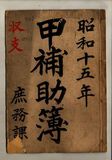 昭和十五年
甲補助簿
収支
庶務課